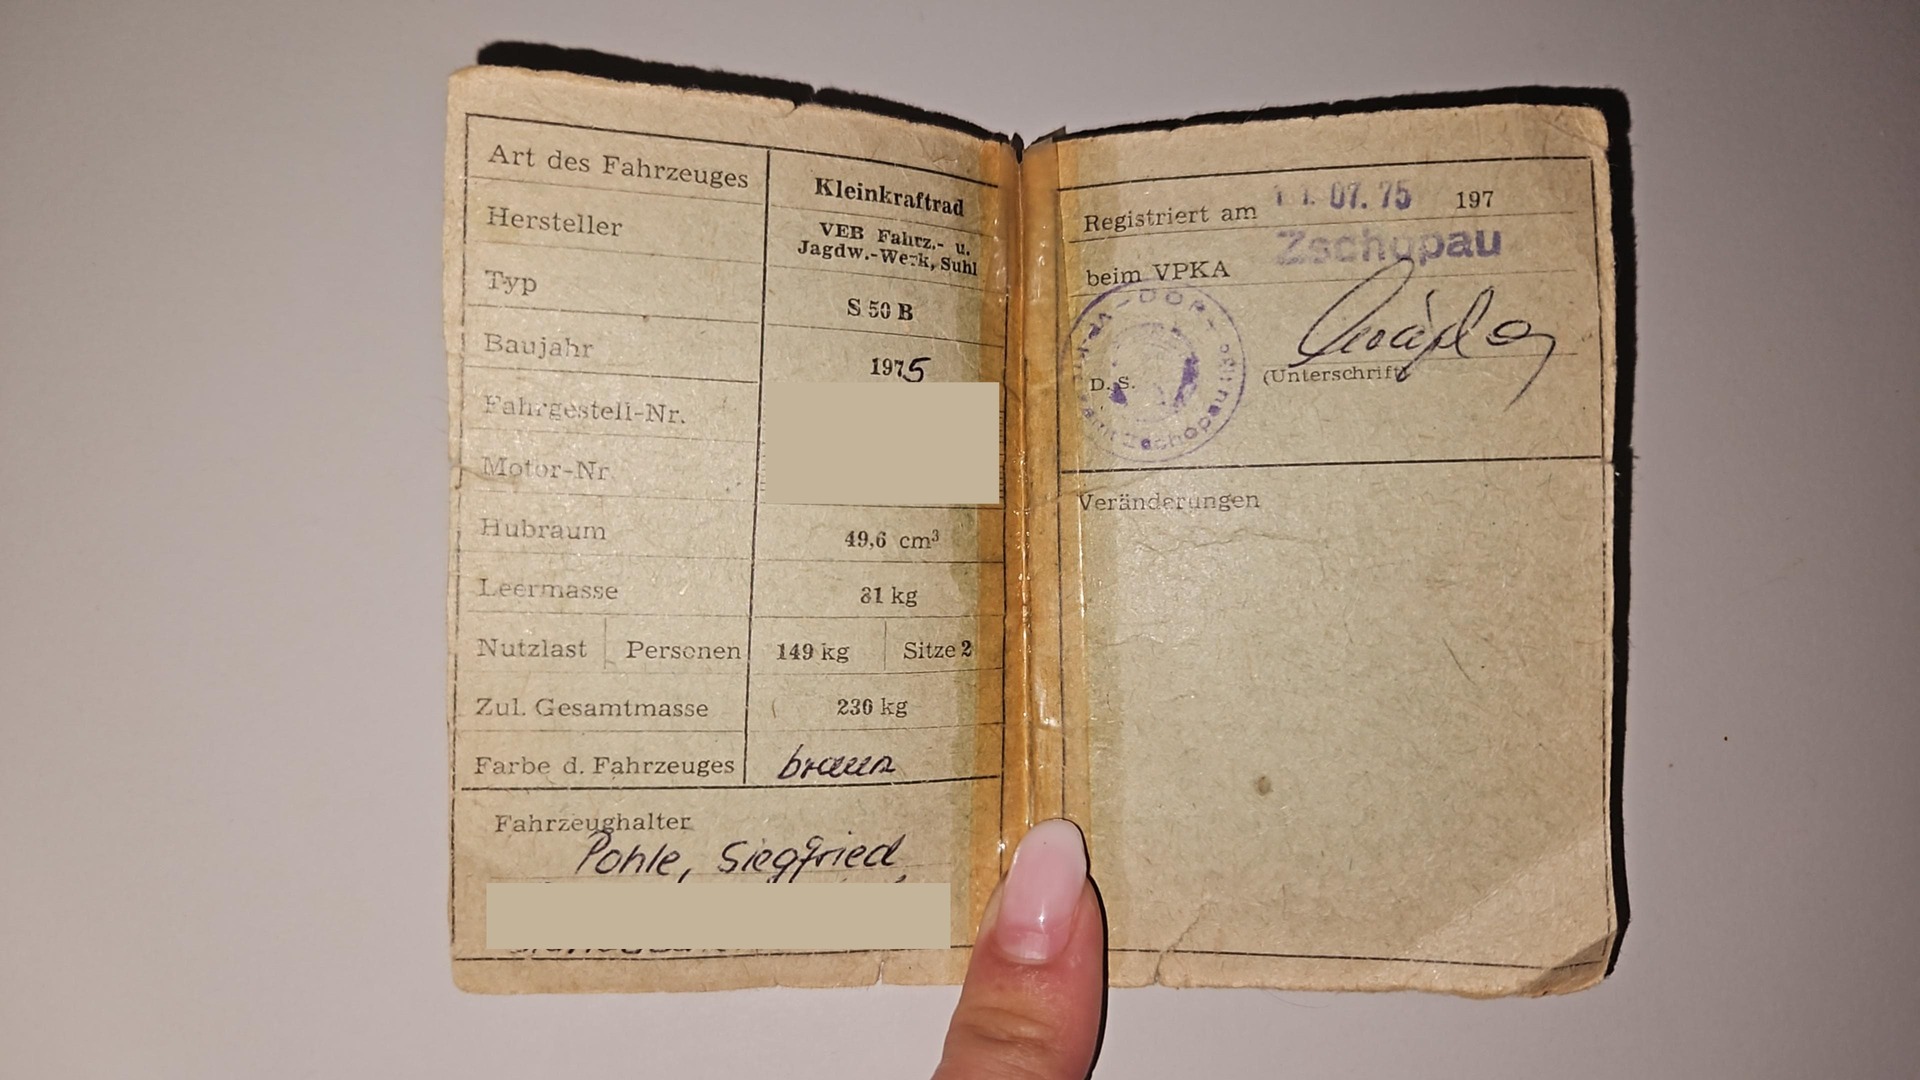 Art des Fahrzeuges Kleinkraftrad
Hersteller VEB Fahrz.- u.
Jagdw.-Werk, Suhl
Typ S 50 B
Baujahr 1975
Fahrgestell-Nr.
Motor-Nr.
Hubraum 49,6 cm³
Leermasse 81 kg
Nutzlast Personen 149 kg Sitze 2
Zul. Gesamtmasse 230 kg
Farbe d. Fahrzeuges braun
Fahrzeughalter
Pohle, Siegfried
Registriert am 11. 07. 75 197
beim VPKA Zschopau
D. S. (Unterschrift)
Zschopau
Veränderungen